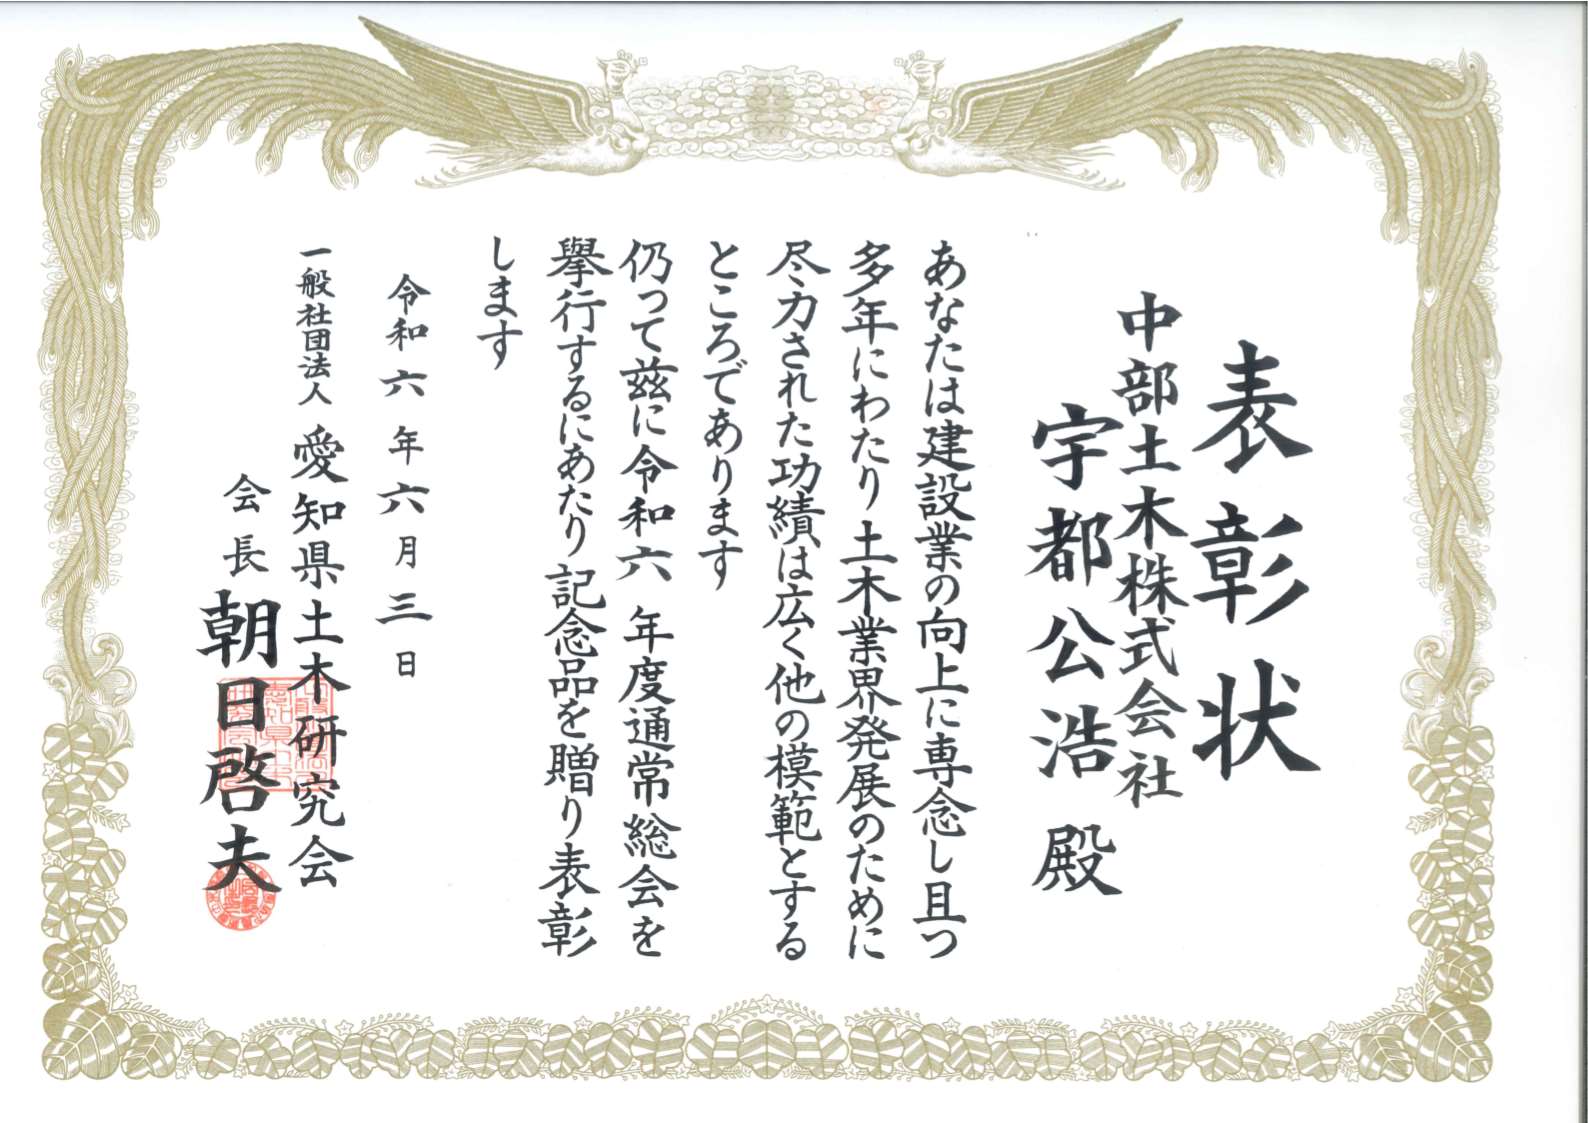 表彰状
中部土木株式会社
宇都公浩 殿
あなたは建設業の向上に専念し且つ
多年にわたり土木業界発展のために
尽力された功績は広く他の模範とする
ところであります
仍って茲に令和六年度通常総会を
擧行するにあたり記念品を贈り表彰
します
令和六年六月三日
一般社団法人 愛知県土木研究会
会長 朝日啓夫